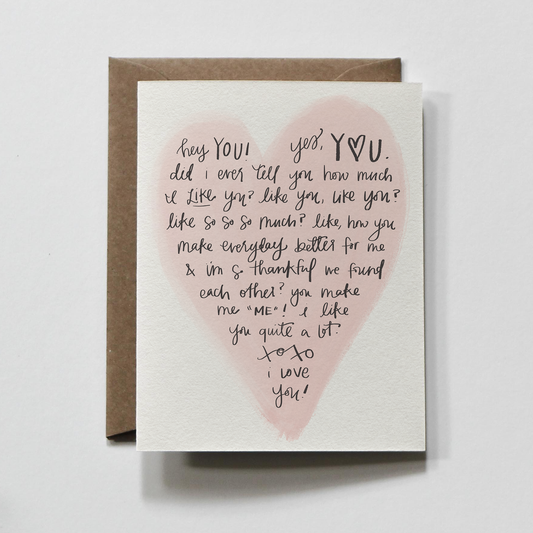 hey YOU! yes, Y♡U.
did i ever tell you how much
I like you? like you, like you?
like so so so much? like, how you
make everyday better for me
& i'm so thankful we found
each other? you make
me "ME"! I like
you quite a lot.
xoxo
i love
you!